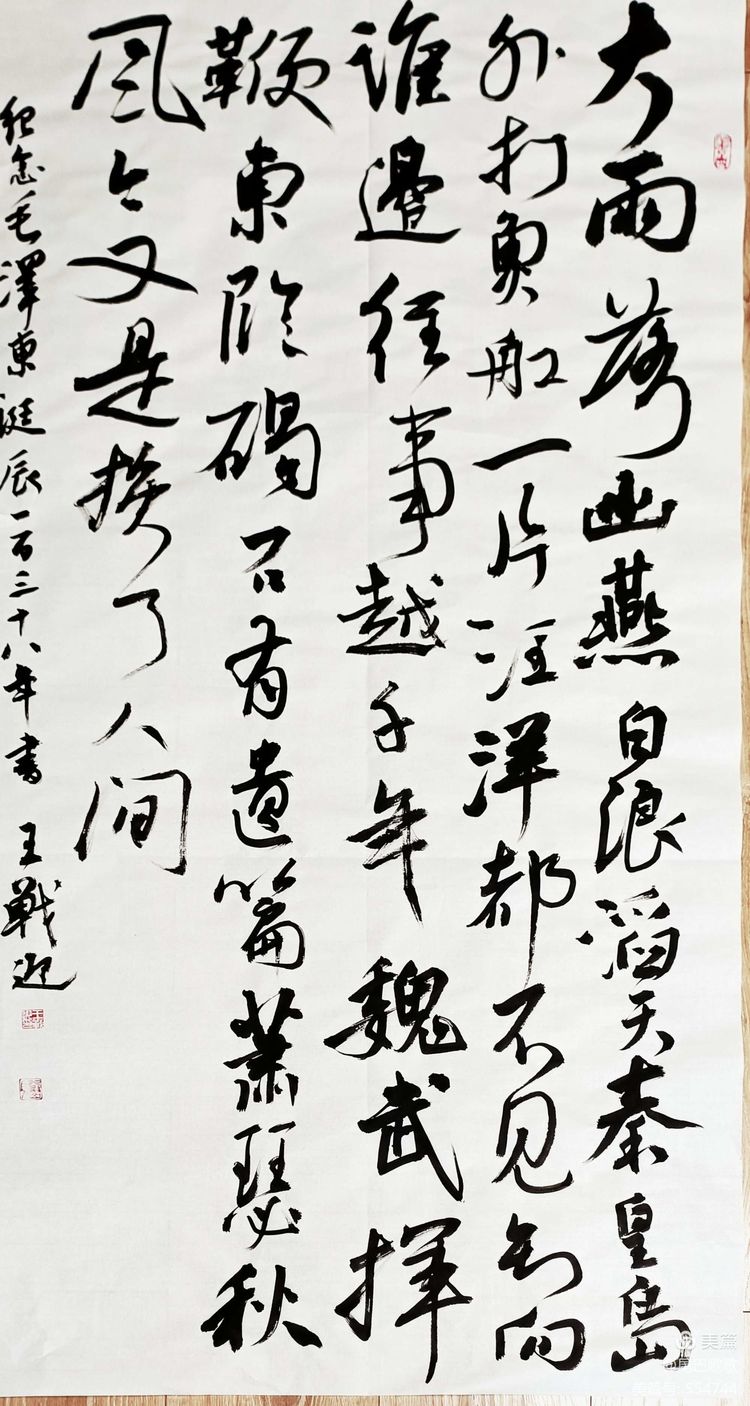 大雨落幽燕白浪滔天秦皇島
外打魚船一片汪洋都不見知向
誰邊往事越千年魏武揮
鞭東臨碣石有遺篇蕭瑟秋
風今又是換了人間
紀念毛澤東誕辰一百三十八年書 王戰迎
美篇